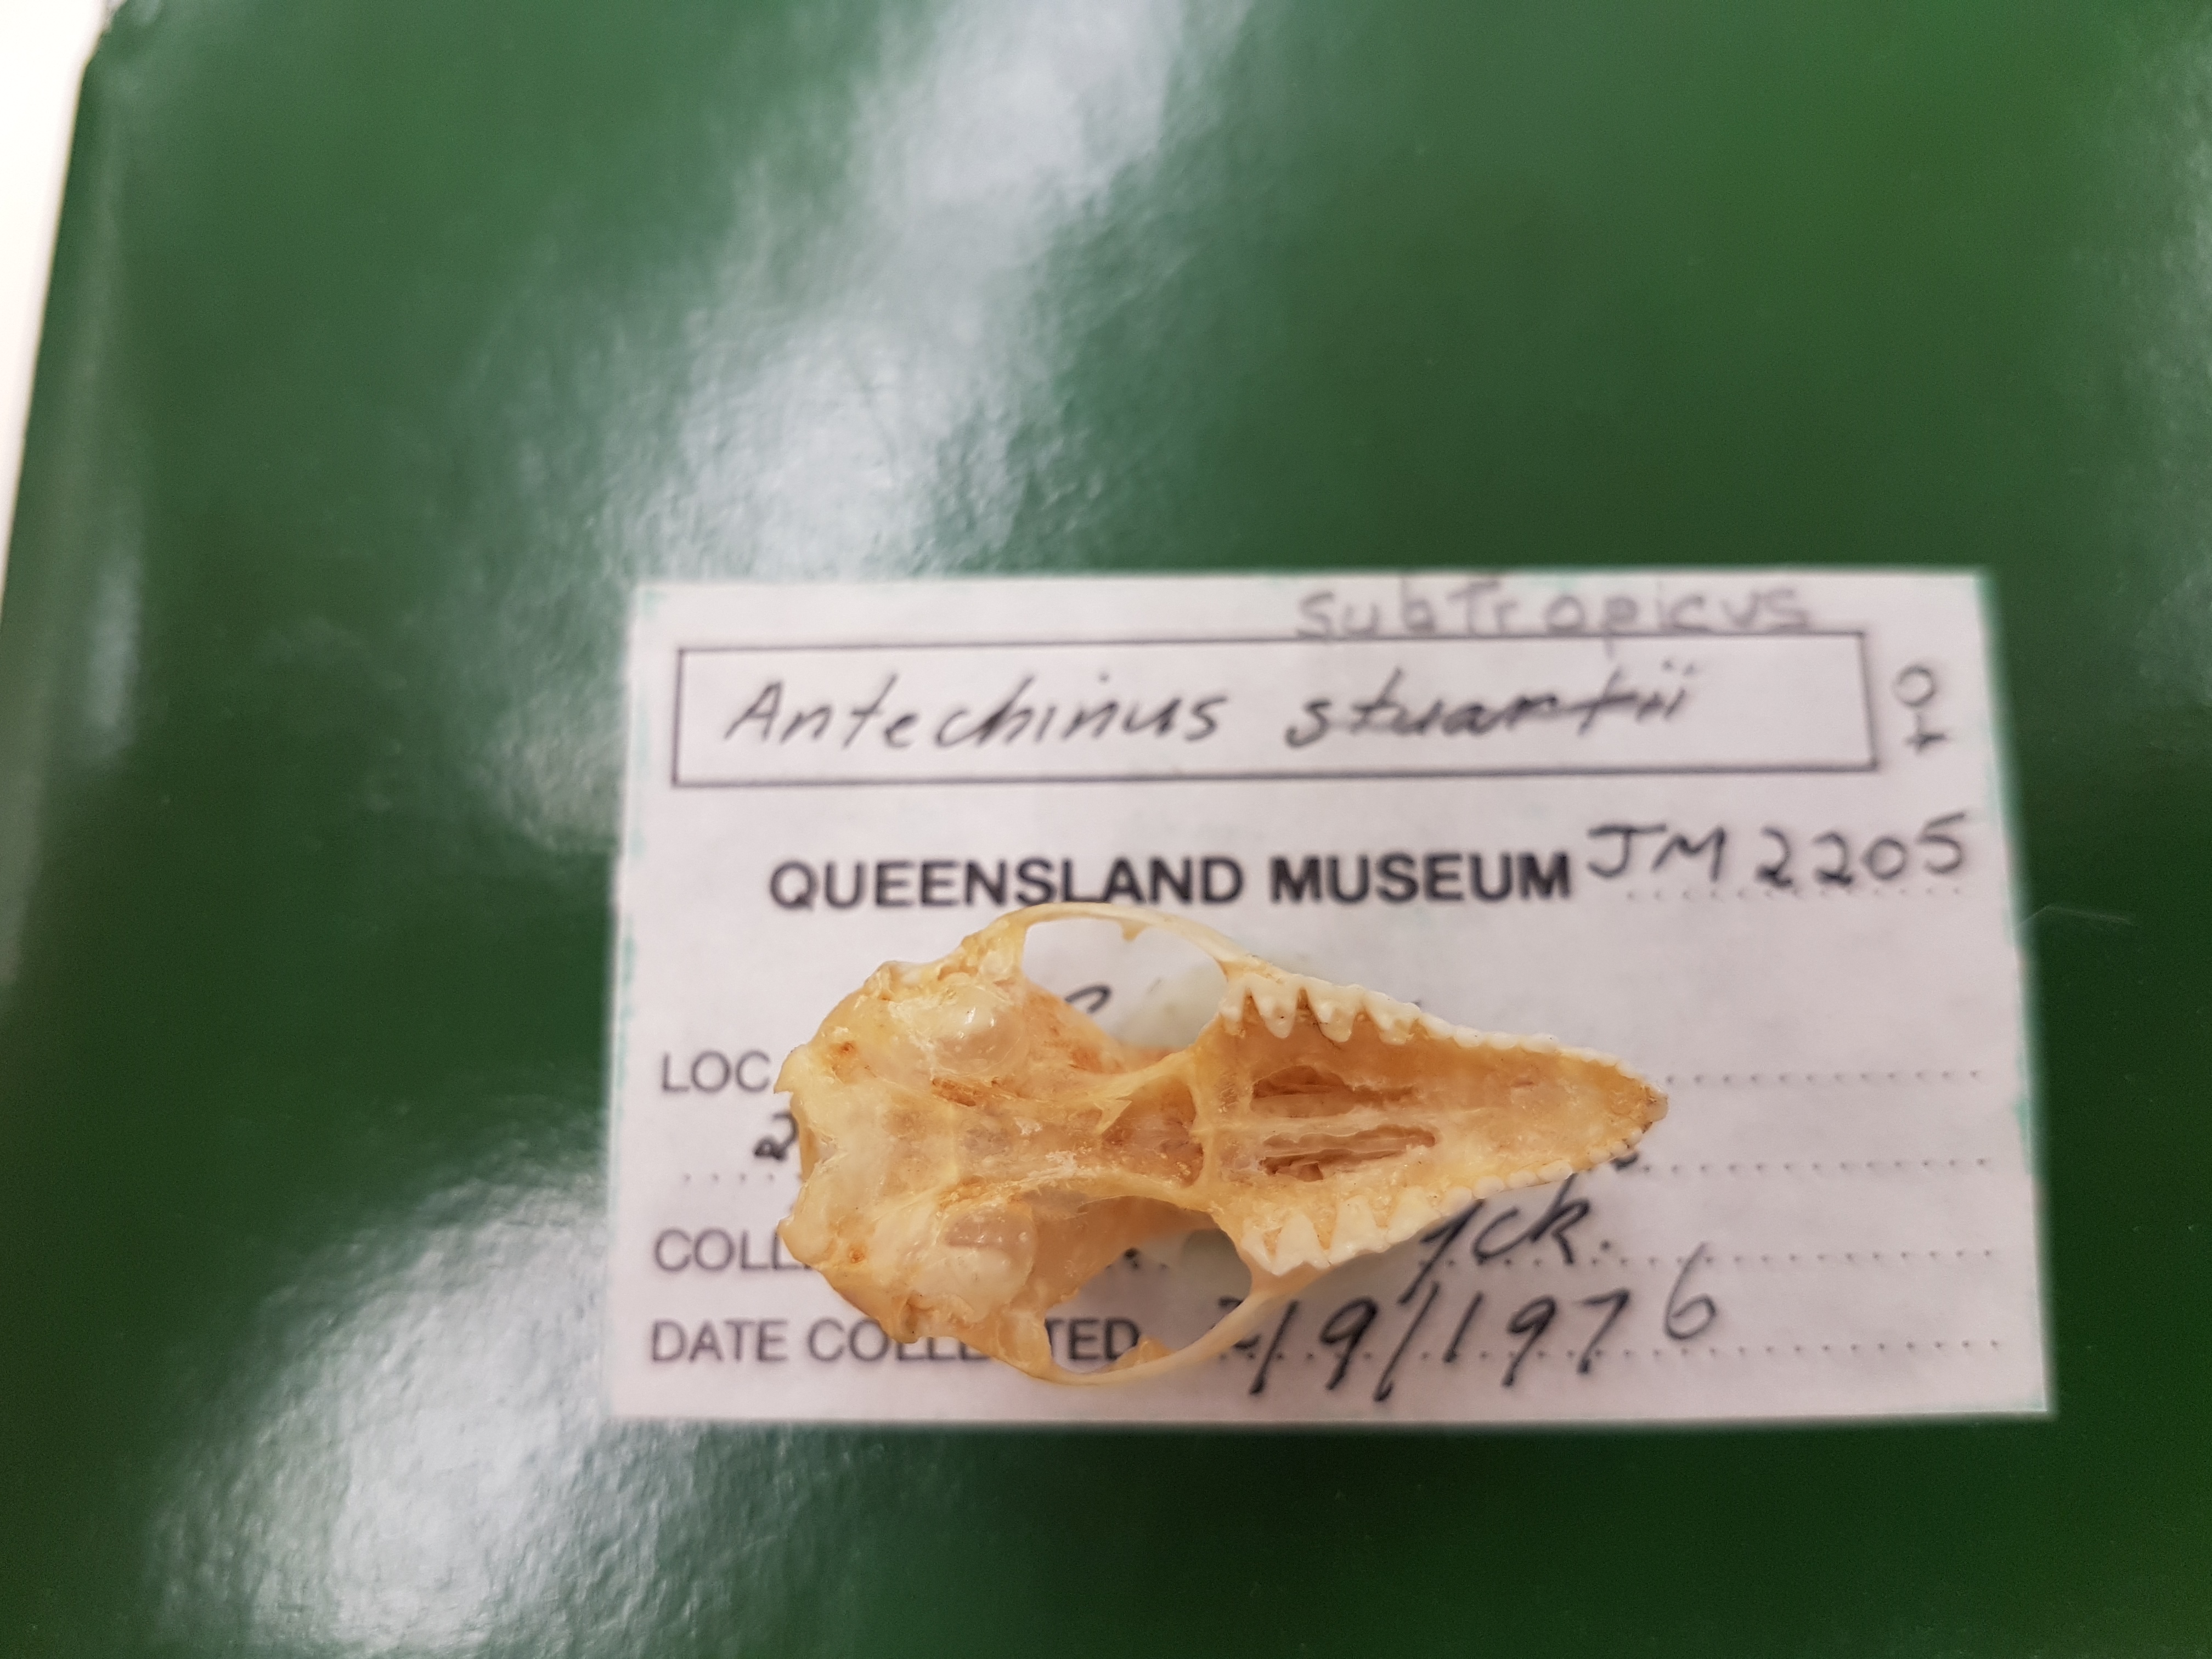 subtropicus
Antechinus stuartii ♀
QUEENSLAND MUSEUM JM2205
LOC
COLL
DATE COLLECTED 9/1976